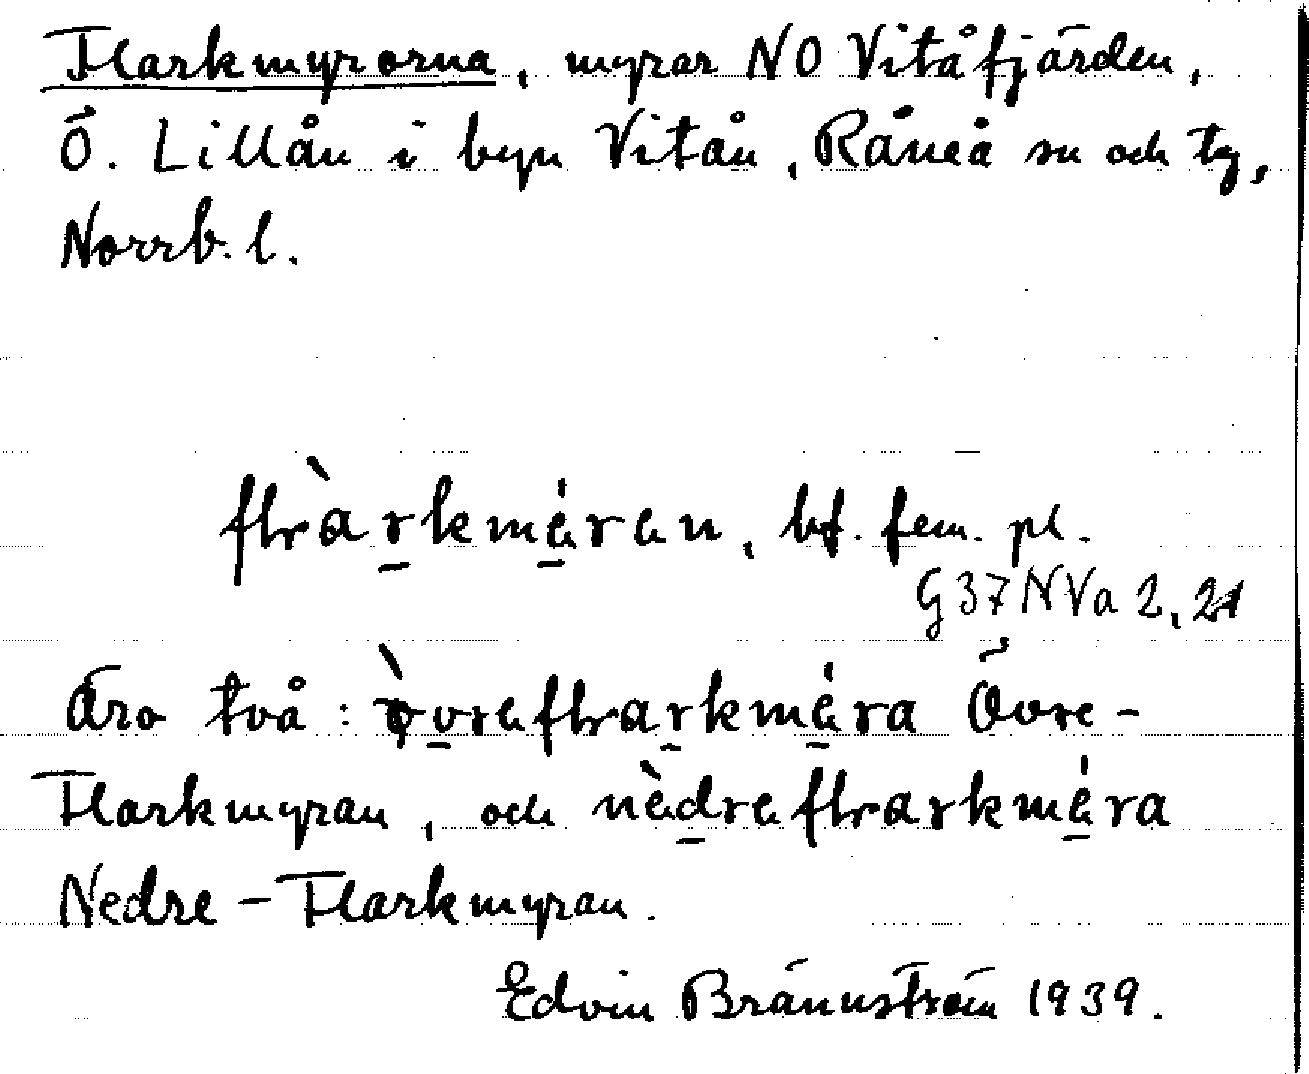 Flarkmyrorna, myrar NO Vitåfjärden,
Ö. Lillån i byn Vitån, Råneå sn och tg,
Norrb. l.
flràrkmé̱ran, bf. fem. pl.
G37NVa 2, 21
Äro två: ò̱v̱reflrarkmé̱ra Övre-
Flarkmyran, och nèḏreflrarkmé̱ra
Nedre-Flarkmyran.
Edvin Brännström 1939.